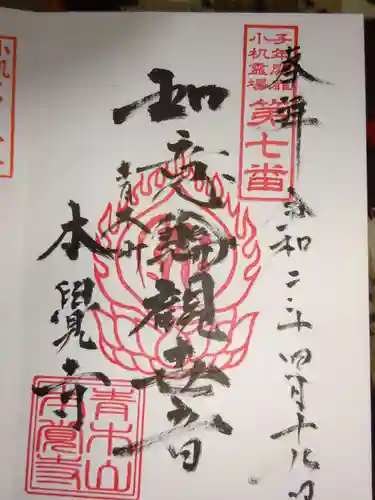 奉拝
令和二年四月十八日
子年開扉
小机霊場
第七番
如意輪観世音
青木山
本覺寺
青木山
本覚寺